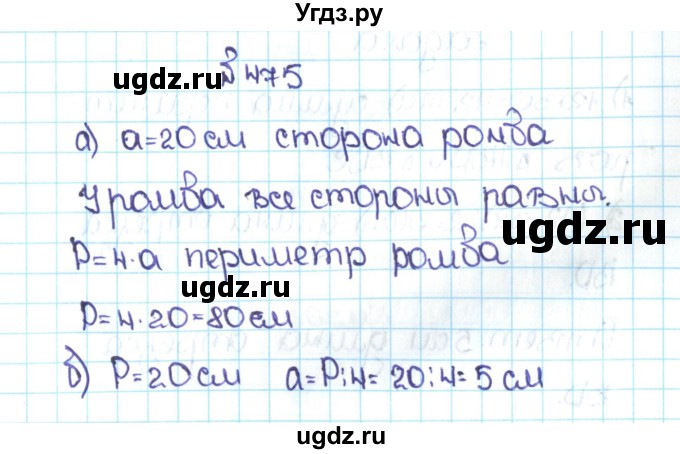 Угдз.ру
ugdz.ru
№ 475
а) а=20 см сторона ромба
У ромба все стороны равны.
ugdz.ru
P=4·а периметр ромба
ugdz.ru
P=4·20=80 см
б) P=20 см а=P:4= 20:4= 5 см
ugdz.ru
ugdz.ru